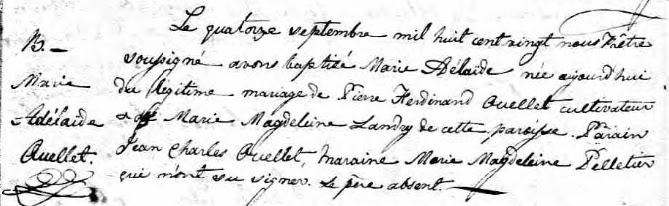 B. —
Marie
Adélaide
Ouellet.
Le quatorze septembre mil huit cent vingt nous Prêtre
soussigné avons baptisé Marie Adélaide née aujourd'hui
du légitime mariage de Pierre Ferdinand Ouellet cultivateur
& de Marie Magdeleine Landry de cette paroisse. Parain
Jean Charles Ouellet, maraine Marie Magdeleine Pelletier
qui n'ont su signer. Le père absent.